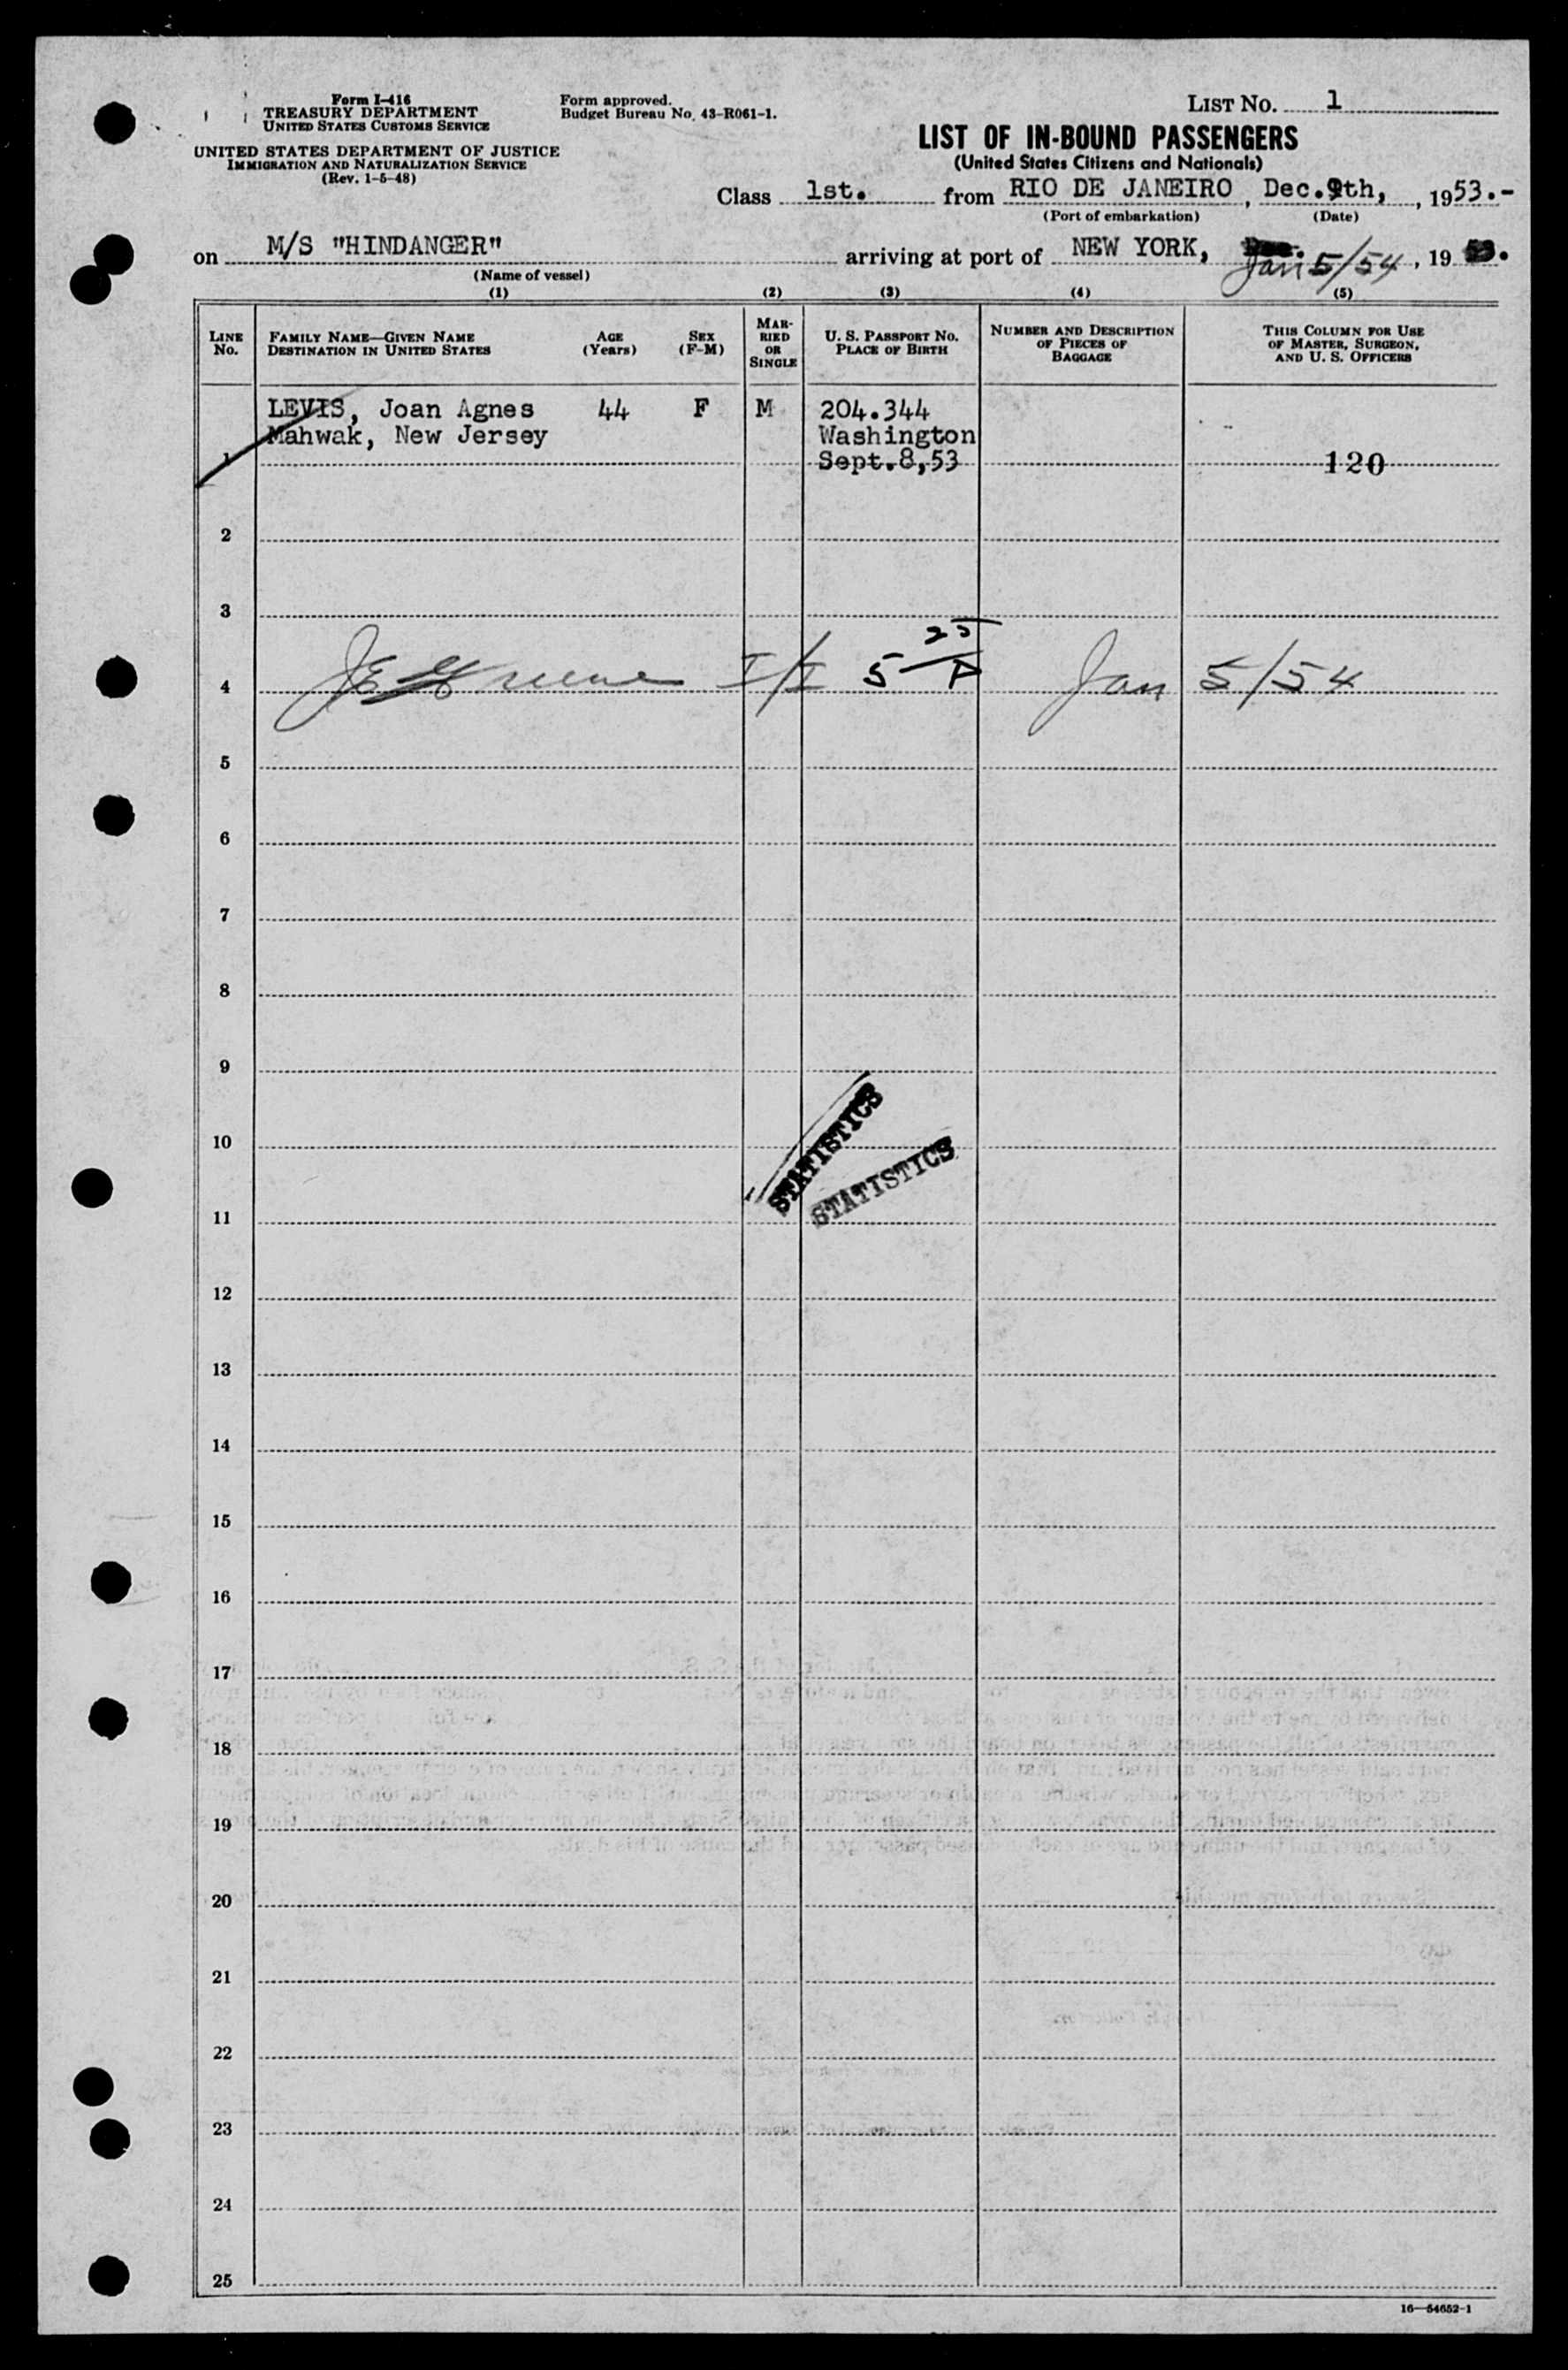 Form I-416
TREASURY DEPARTMENT
UNITED STATES CUSTOMS SERVICE
UNITED STATES DEPARTMENT OF JUSTICE
IMMIGRATION AND NATURALIZATION SERVICE
(Rev. 1-5-48)
Form approved.
Budget Bureau No. 43-R061-1.
LIST NO. 1
LIST OF IN-BOUND PASSENGERS
(United States Citizens and Nationals)
Class 1st. from RIO DE JANEIRO, Dec.9th, , 1953.-
(Port of embarkation) (Date)
on M/S "HINDANGER" arriving at port of NEW YORK, Jan 5/54, 19 53.
(Name of vessel)
(1) (2) (3) (4) (5)
LINE No. FAMILY NAME—GIVEN NAME DESTINATION IN UNITED STATES AGE (Years) SEX (F-M) MARRIED OR SINGLE U. S. PASSPORT NO. PLACE OF BIRTH NUMBER AND DESCRIPTION OF PIECES OF BAGGAGE THIS COLUMN FOR USE OF MASTER, SURGEON, AND U. S. OFFICERS
LEVIS, Joan Agnes 44 F M 204.344
Mahwak, New Jersey Washington
1 Sept.8,53 120
2
3
4 J E Greene I/I 5 25/P Jan 5/54
5
6
7
8
9
10
STATISTICS
STATISTICS
11
12
13
14
15
16
17
18
19
20
21
22
23
24
25
16—54652-1